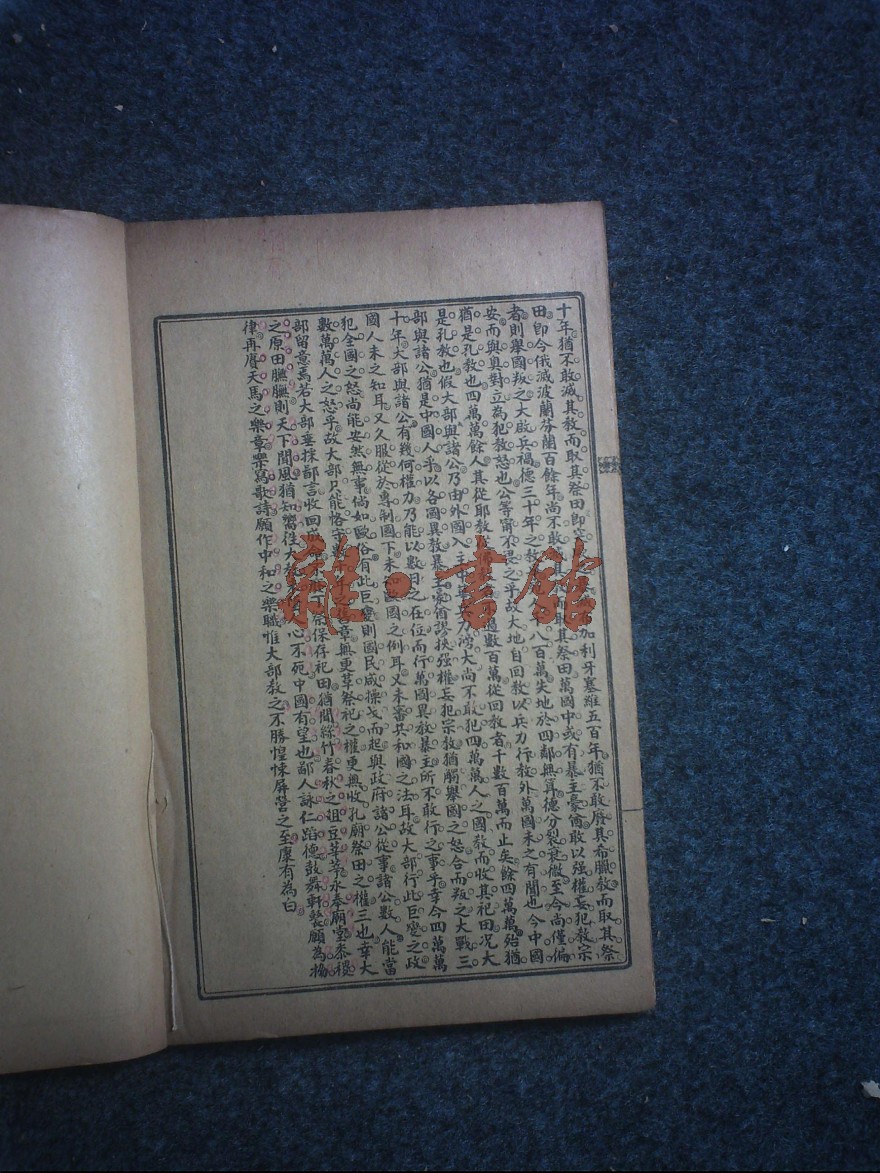 十年猶不敢滅其教而取其祭田即突加利牙塞維五百年猶不敢廢其希臘教而取其祭
田即今俄滅波蘭芬蘭百餘年尚不敢滅其而取其祭田萬國中或有暴主豪酋敢以強權妄犯教宗
者則舉國叛之大啟兵禍德三十年之教八百萬失地於四鄰無算德分裂衰微至今尚僅偏
安而與奧對立為犯教怒也公等寧不畏之乎故大地自回教以兵力行教外萬國未之有聞也今中國
猶是孔教也四萬萬餘人其從耶教過數百萬從回教者千數百萬而止矣餘四萬萬殆猶
是孔教也假大部與諸公乃由外國入主中兵力滂大尚不敢犯四萬萬人之國教而收其祀田况大
部與諸公猶是中國人乎以各國異教暴主豪酋謬挾強權妄犯宗教猶觸舉國之怒合而叛之大戰三
十年大部與諸公有幾何權力乃能以數日之在位而行萬國異教暴主所不敢行之事乎幸今四萬萬
國人未之知耳又久服從於專制國下未知國之例耳又未審共和國之法耳故大部行此巨變之政
犯全國之怒尚能安然無事倘如歐俗有此巨變則國民咸操戈而起與政府諸公從事諸公數人能當
數萬萬人之怒乎故大部只能恪守之舊章無更革祭祀之權更無收孔廟祭田之權三也幸大
部留意焉若大部垂採鄙言收回成丁祭保存祀田猶聞絲竹春秋之俎豆莘莘永奉廟堂黍稷
之原田膴膴則天下聞風猶知嚮往大教心不死中國有望也鄙人詠仁蹈德鼓舞軒鬖願為揚
律再賡天馬之樂章樂寫歌詩願作中和之樂職惟大部教之不勝惶悚屏營之至康有為白
雜·書館